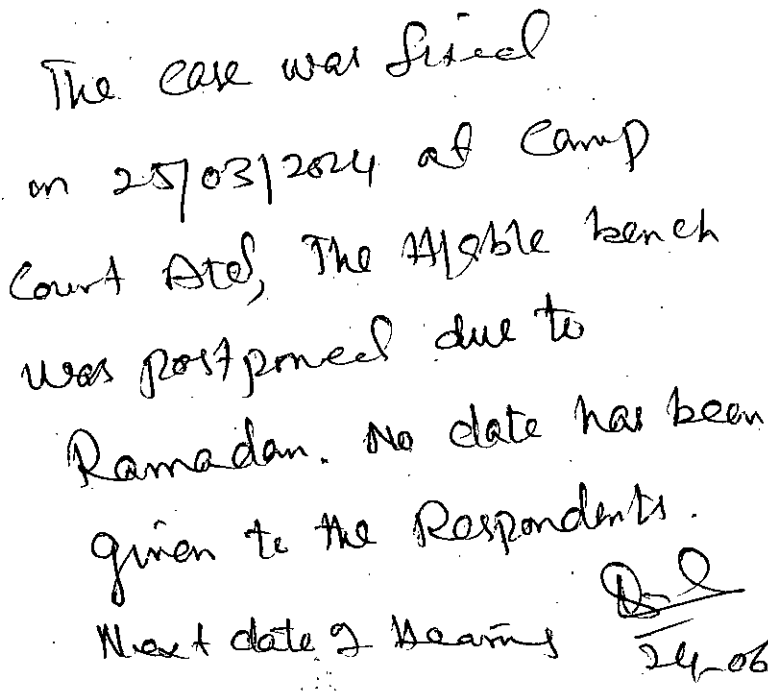 The case was fixed
on 25/03/2024 at Camp
Court Atd, The H,able bench
was postponed due to
Ramadan. No date has been
given to the Respondents.
Next date of Hearing
24-06